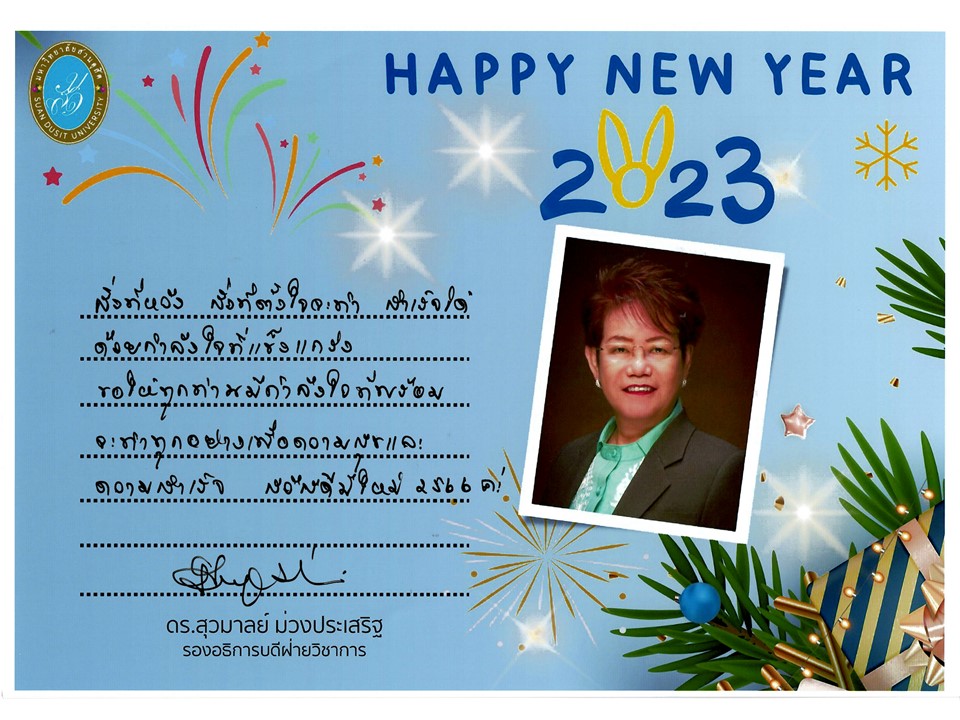 มหาวิทยาลัยสวนดุสิต
SUAN DUSIT UNIVERSITY
HAPPY NEW YEAR
2023
สิ่งที่หวัง สิ่งที่ตั้งใจจะทำ สำเร็จได้
ด้วยกำลังใจที่แข็งแกร่ง
ขอให้ทุกท่านมีกำลังใจที่พร้อม
จะทำทุกอย่างเพื่อความสุขและ
ความสำเร็จ สวัสดีปีใหม่ 2566 ค่ะ
ดร.สุวมาลย์ ม่วงประเสริฐ
รองอธิการบดีฝ่ายวิชาการ